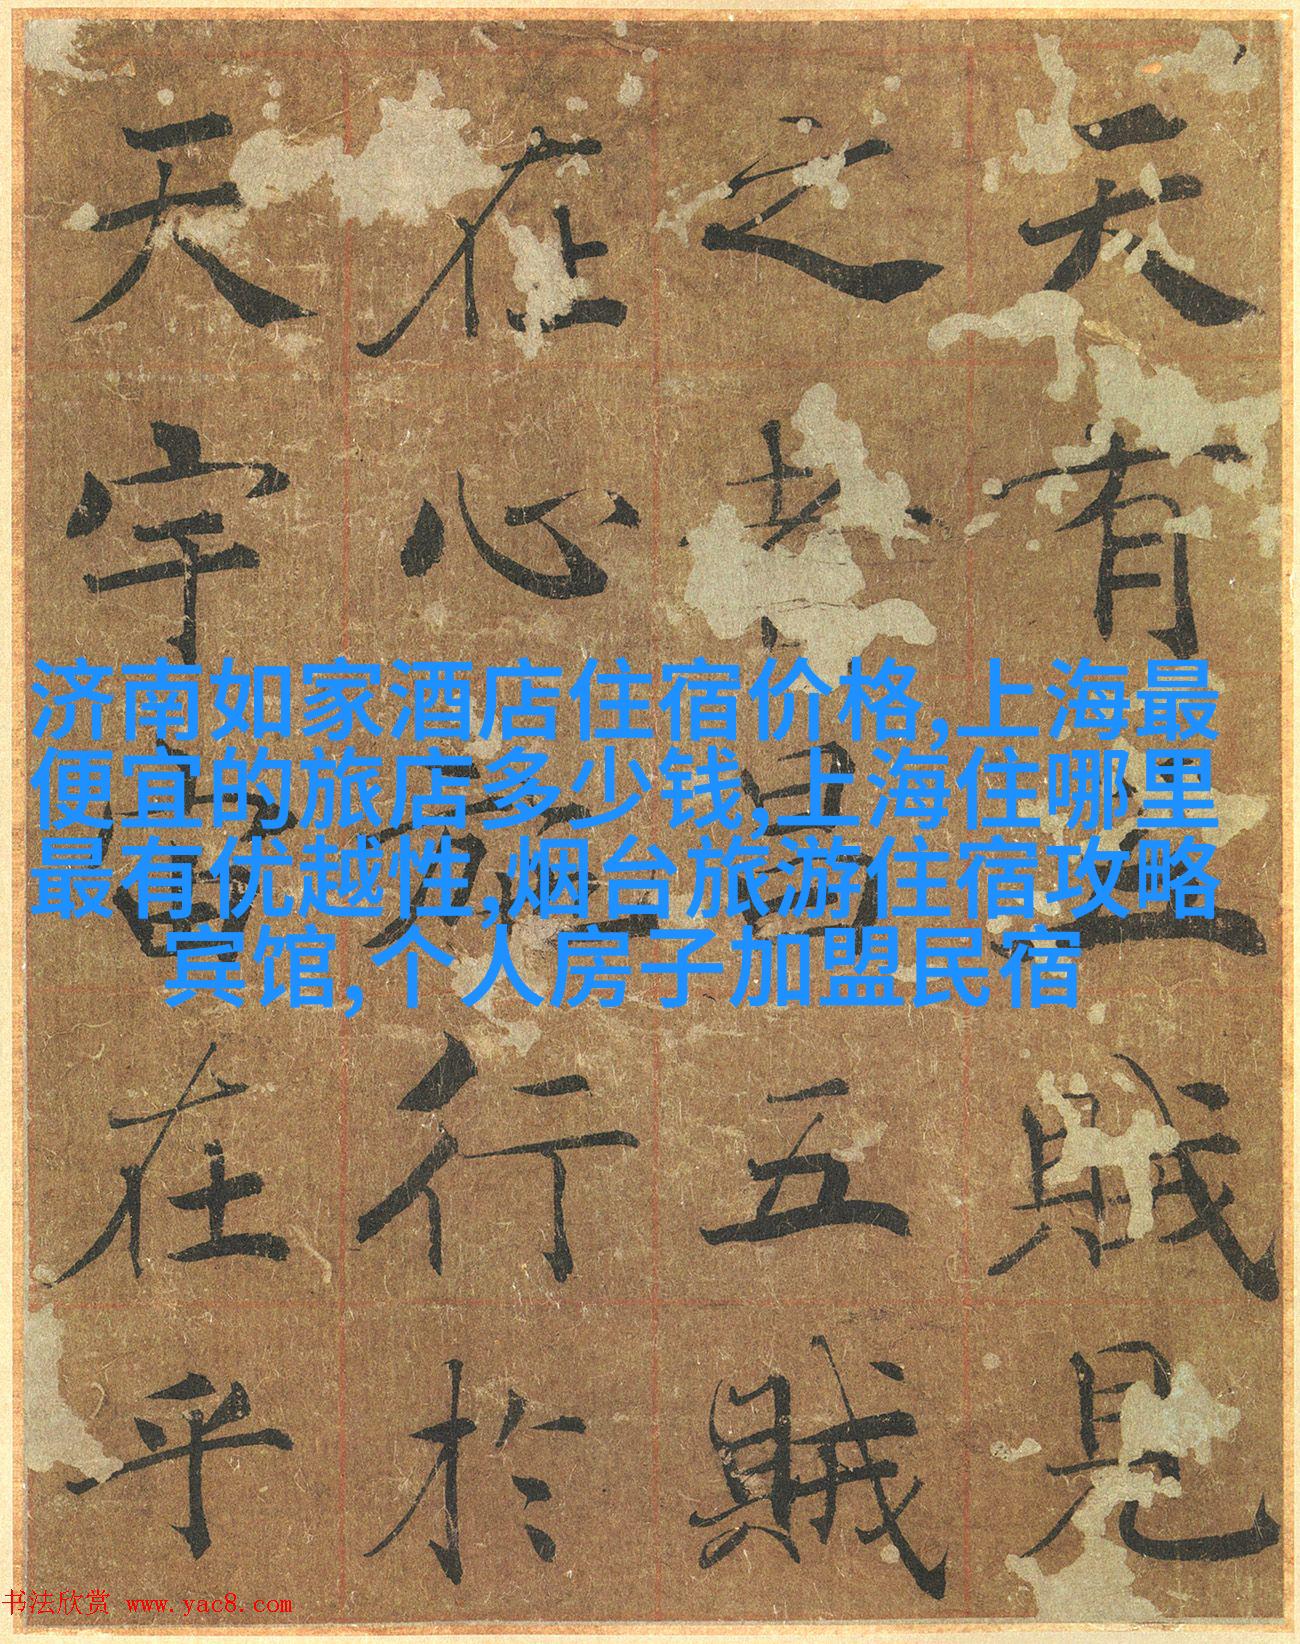 天有五賊見
之者昌五賊
在心施行於
天宇宙在乎
济南如家酒店住宿价格,上海最
便宜的旅店多少钱,上海住哪里
最有优越性,烟台旅游住宿攻略
宾馆,个人房子加盟民宿
书法欣赏 www.yac8.com